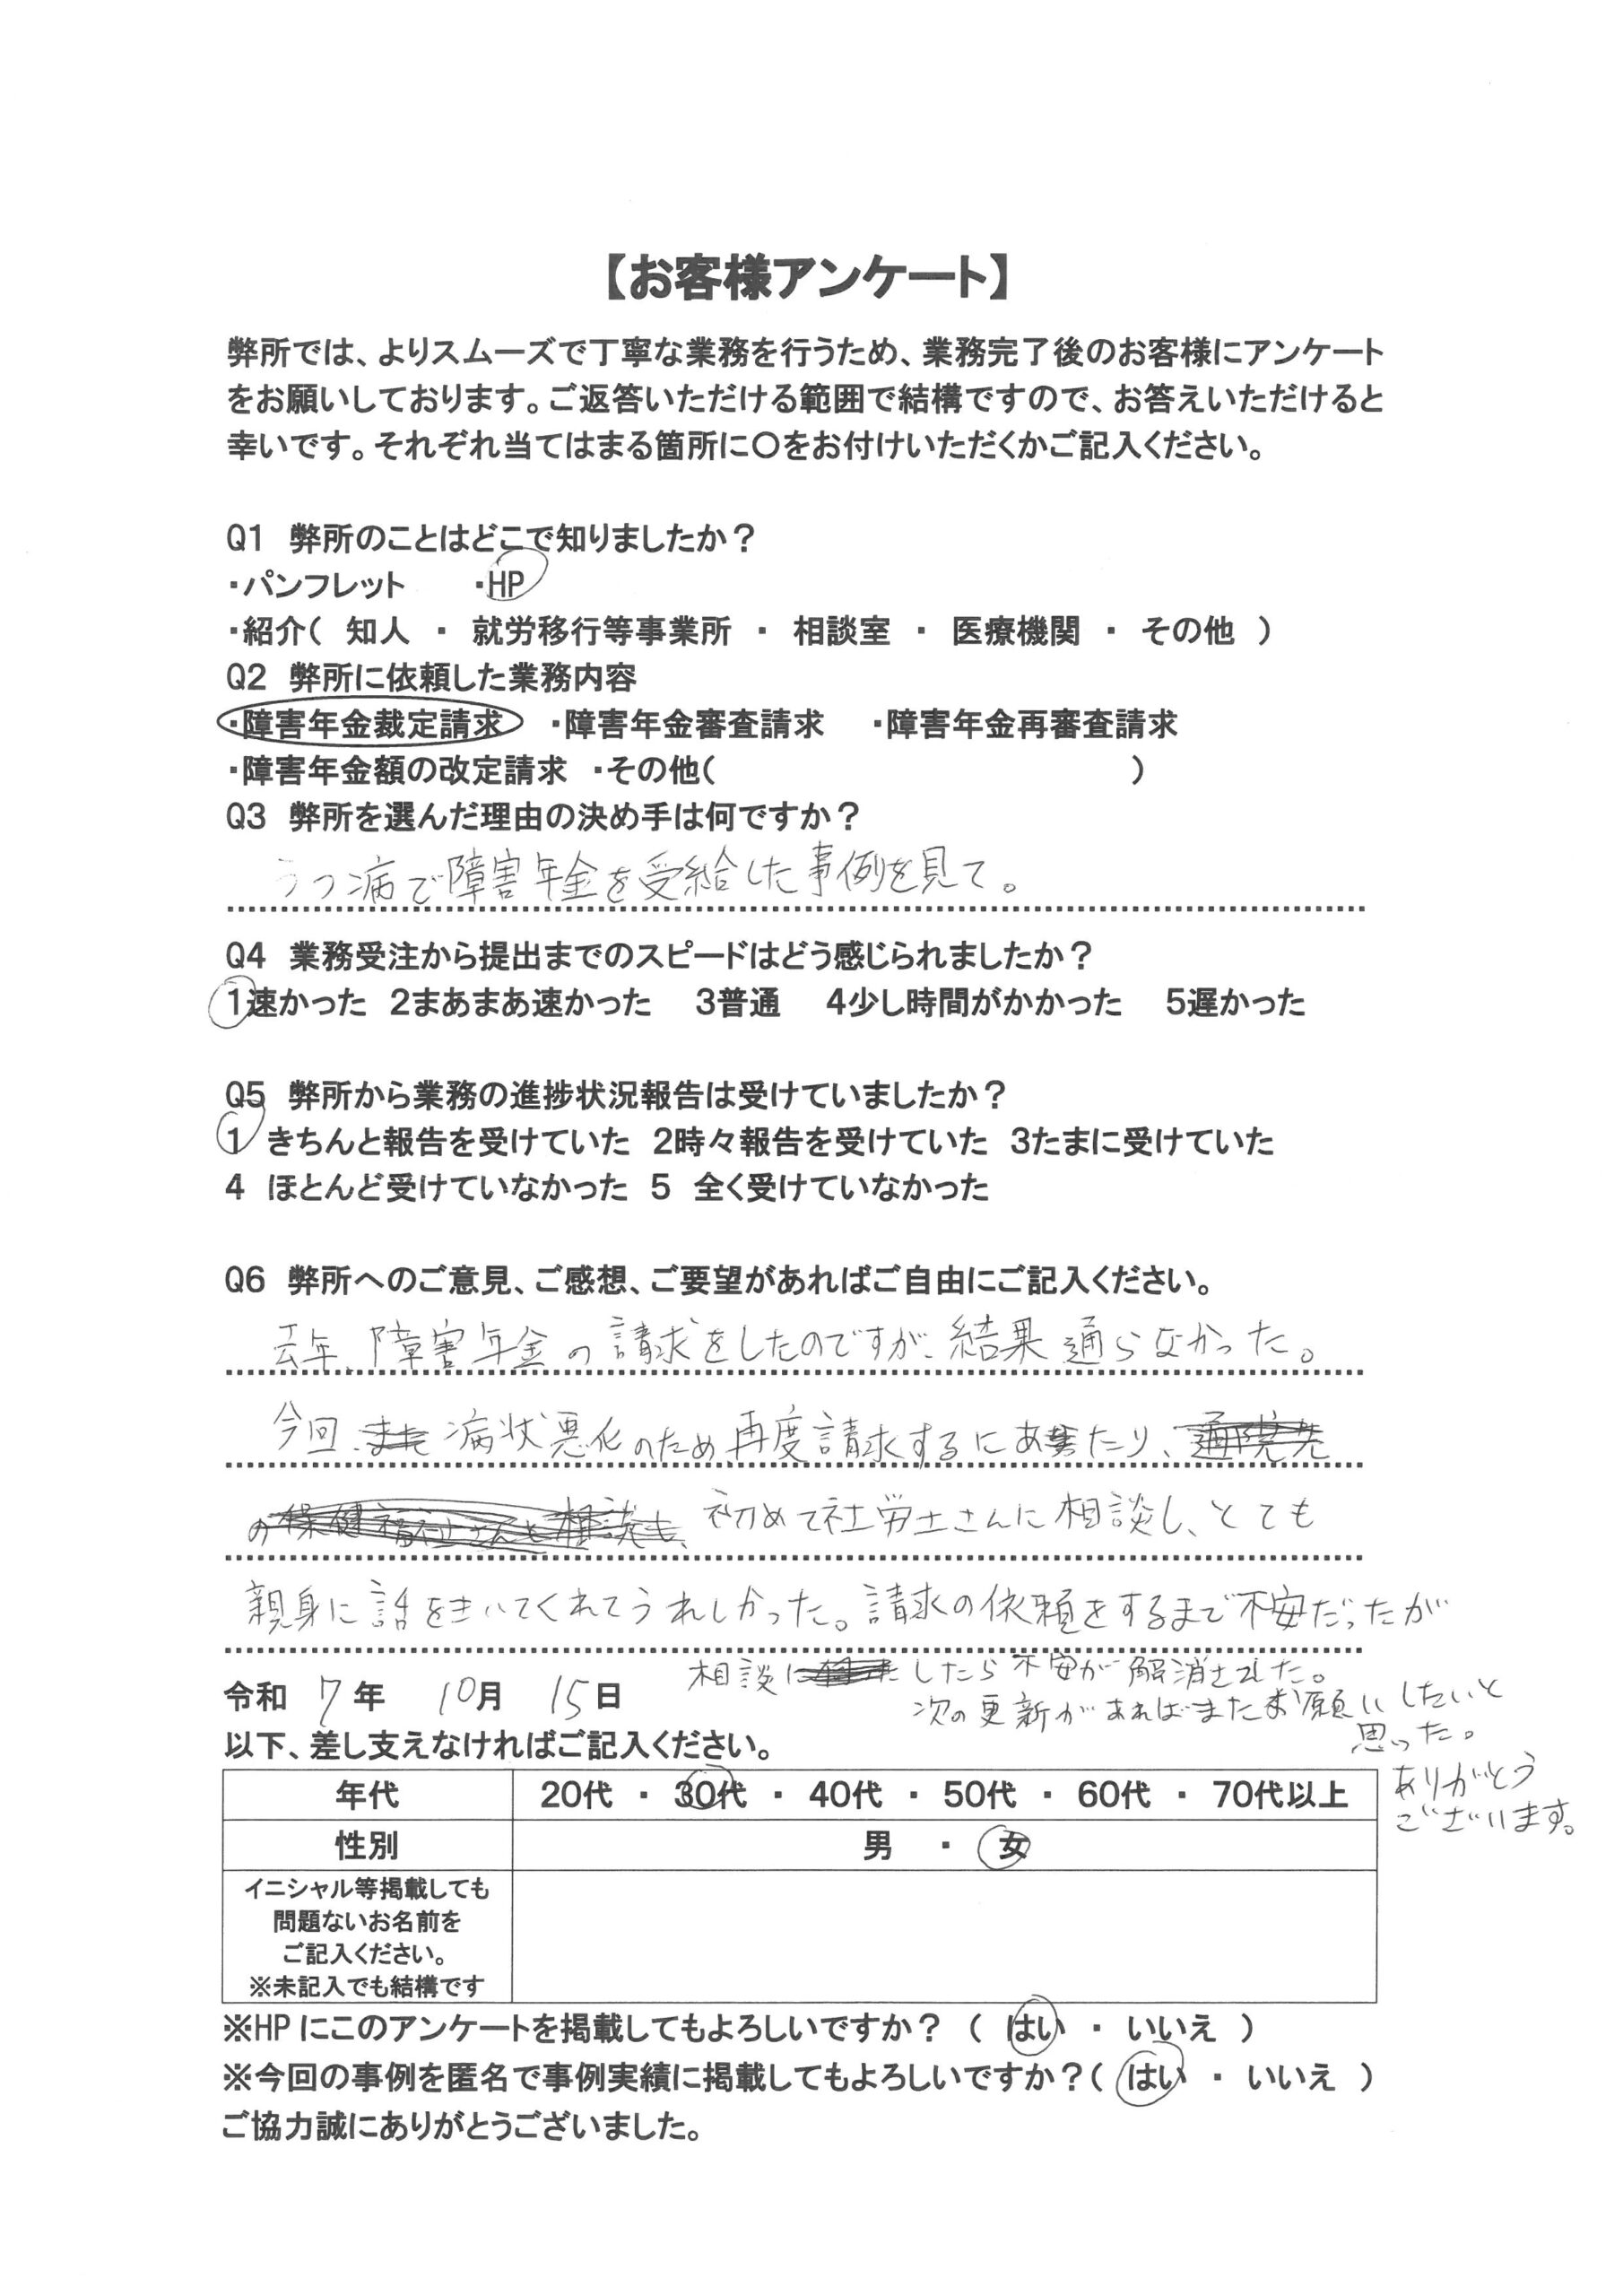 【お客様アンケート】
弊所では、よりスムーズで丁寧な業務を行うため、業務完了後のお客様にアンケート
をお願いしております。ご返答いただける範囲で結構ですので、お答えいただけると
幸いです。それぞれ当てはまる箇所に〇をお付けいただくかご記入ください。
Q1 弊所のことはどこで知りましたか？
・パンフレット ・HP
・紹介（ 知人 ・ 就労移行等事業所 ・ 相談室 ・ 医療機関 ・ その他 ）
Q2 弊所に依頼した業務内容
・障害年金裁定請求 ・障害年金審査請求 ・障害年金再審査請求
・障害年金額の改定請求 ・その他（ ）
Q3 弊所を選んだ理由の決め手は何ですか？
うつ病で障害年金を受給した事例を見て。
Q4 業務受注から提出までのスピードはどう感じられましたか？
1速かった 2まあまあ速かった 3普通 4少し時間がかかった 5遅かった
Q5 弊所から業務の進捗状況報告は受けていましたか？
1 きちんと報告を受けていた 2時々報告を受けていた 3たまに受けていた
4 ほとんど受けていなかった 5 全く受けていなかった
Q6 弊所へのご意見、ご感想、ご要望があればご自由にご記入ください。
去年、障害年金の請求をしたのですが、結果通らなかった。
今回、病状悪化のため再度請求するにあたり、
初めて社労士さんに相談し、とても
親身に話をきいてくれてうれしかった。請求の依頼をするまで不安だったが
相談に したら不安が解消された。
次の更新があればまたお願いしたいと
思った。
ありがとう
ございます。
令和 7年 10月 15日
以下、差し支えなければご記入ください。
年代 20代 ・ 30代 ・ 40代 ・ 50代 ・ 60代 ・ 70代以上
性別 男 ・ 女
イニシャル等掲載しても
問題ないお名前を
ご記入ください。
※未記入でも結構です
※HPにこのアンケートを掲載してもよろしいですか？（ はい ・ いいえ ）
※今回の事例を匿名で事例実績に掲載してもよろしいですか？（ はい ・ いいえ ）
ご協力誠にありがとうございました。